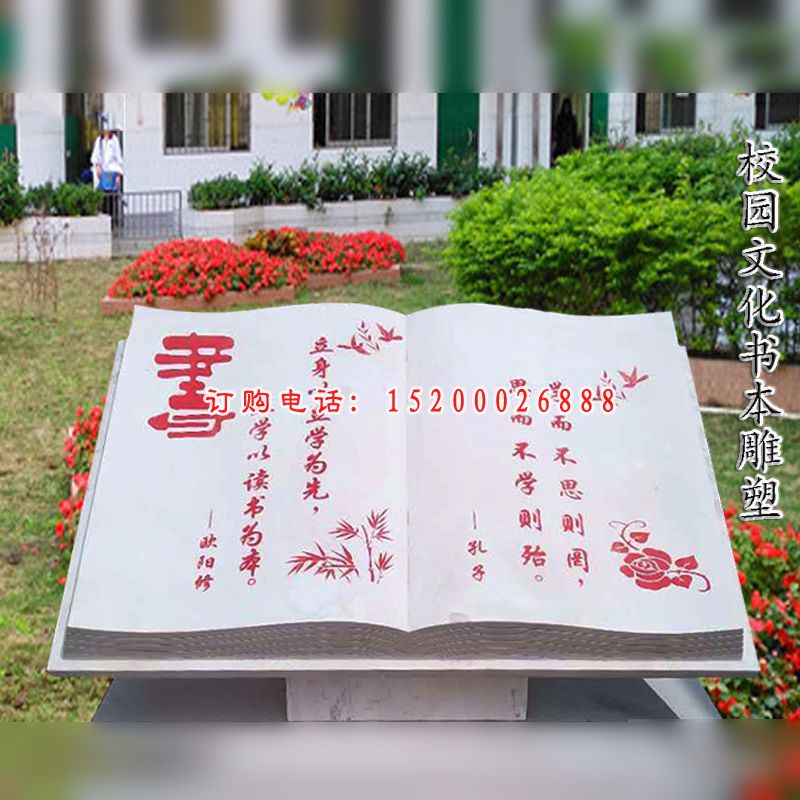 校园文化书本雕塑
订购电话: 15200026888
書
立身以立学为先,
立学以读书为本。
—欧阳修
学而不思则罔,
思而不学则殆。
—孔子